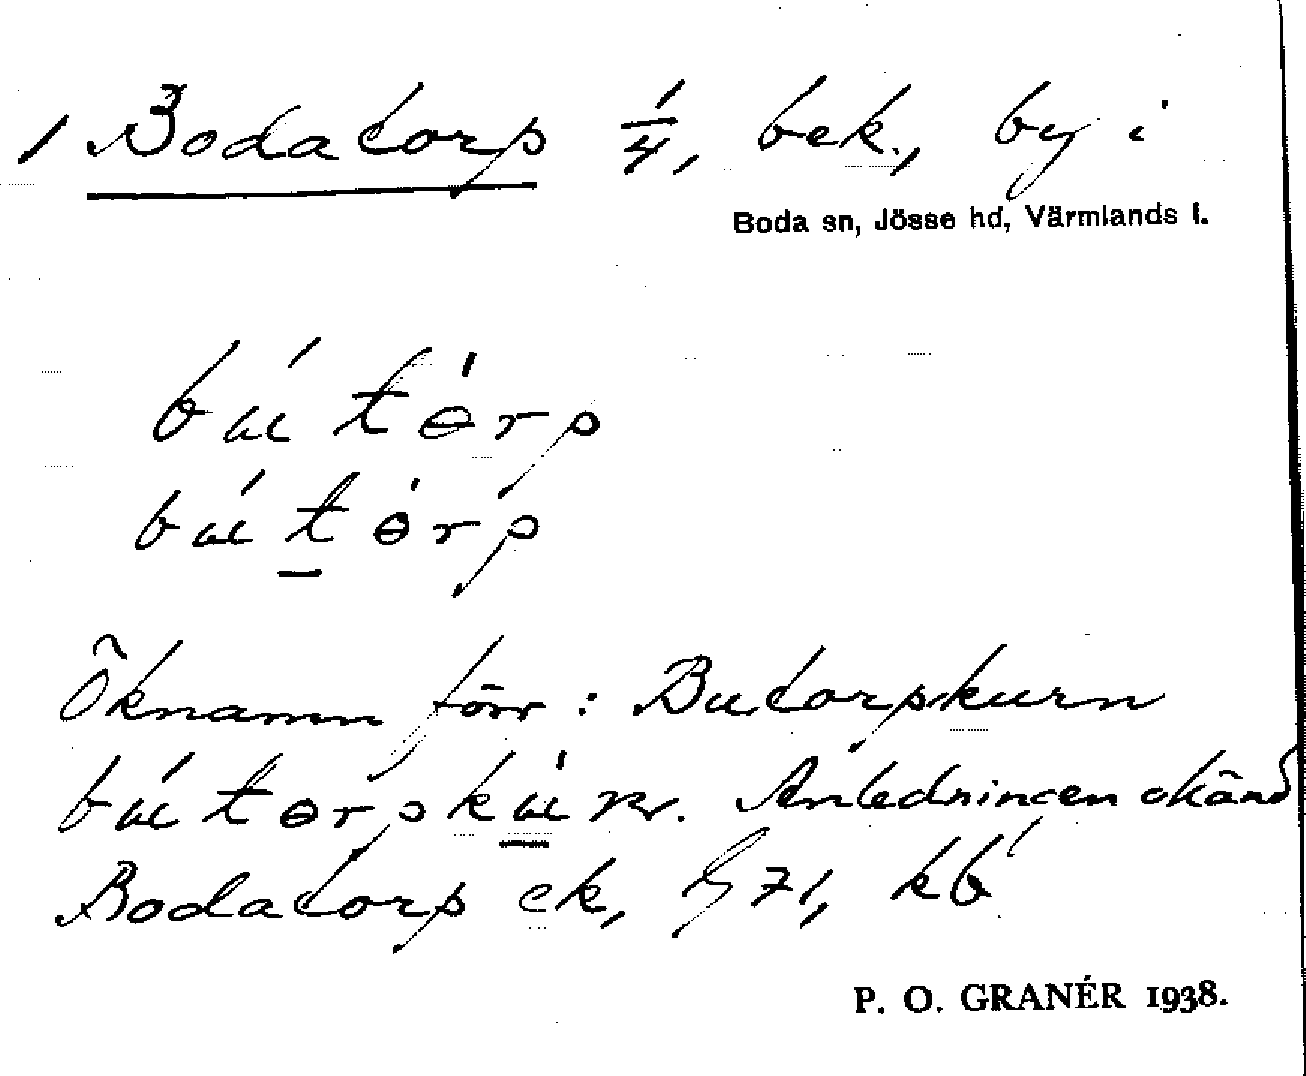 1 Bodatorp 1/4, bek., by i
Boda sn, Jösse hd, Värmlands l.
bút ɵ́rp
bút ɵ́rp
Öknamn förr: Butorpskurn
bútɵrpskúrn. Anledningen okänd
Bodatorp ek, G 71, kb
P. O. GRANÉR 1938.